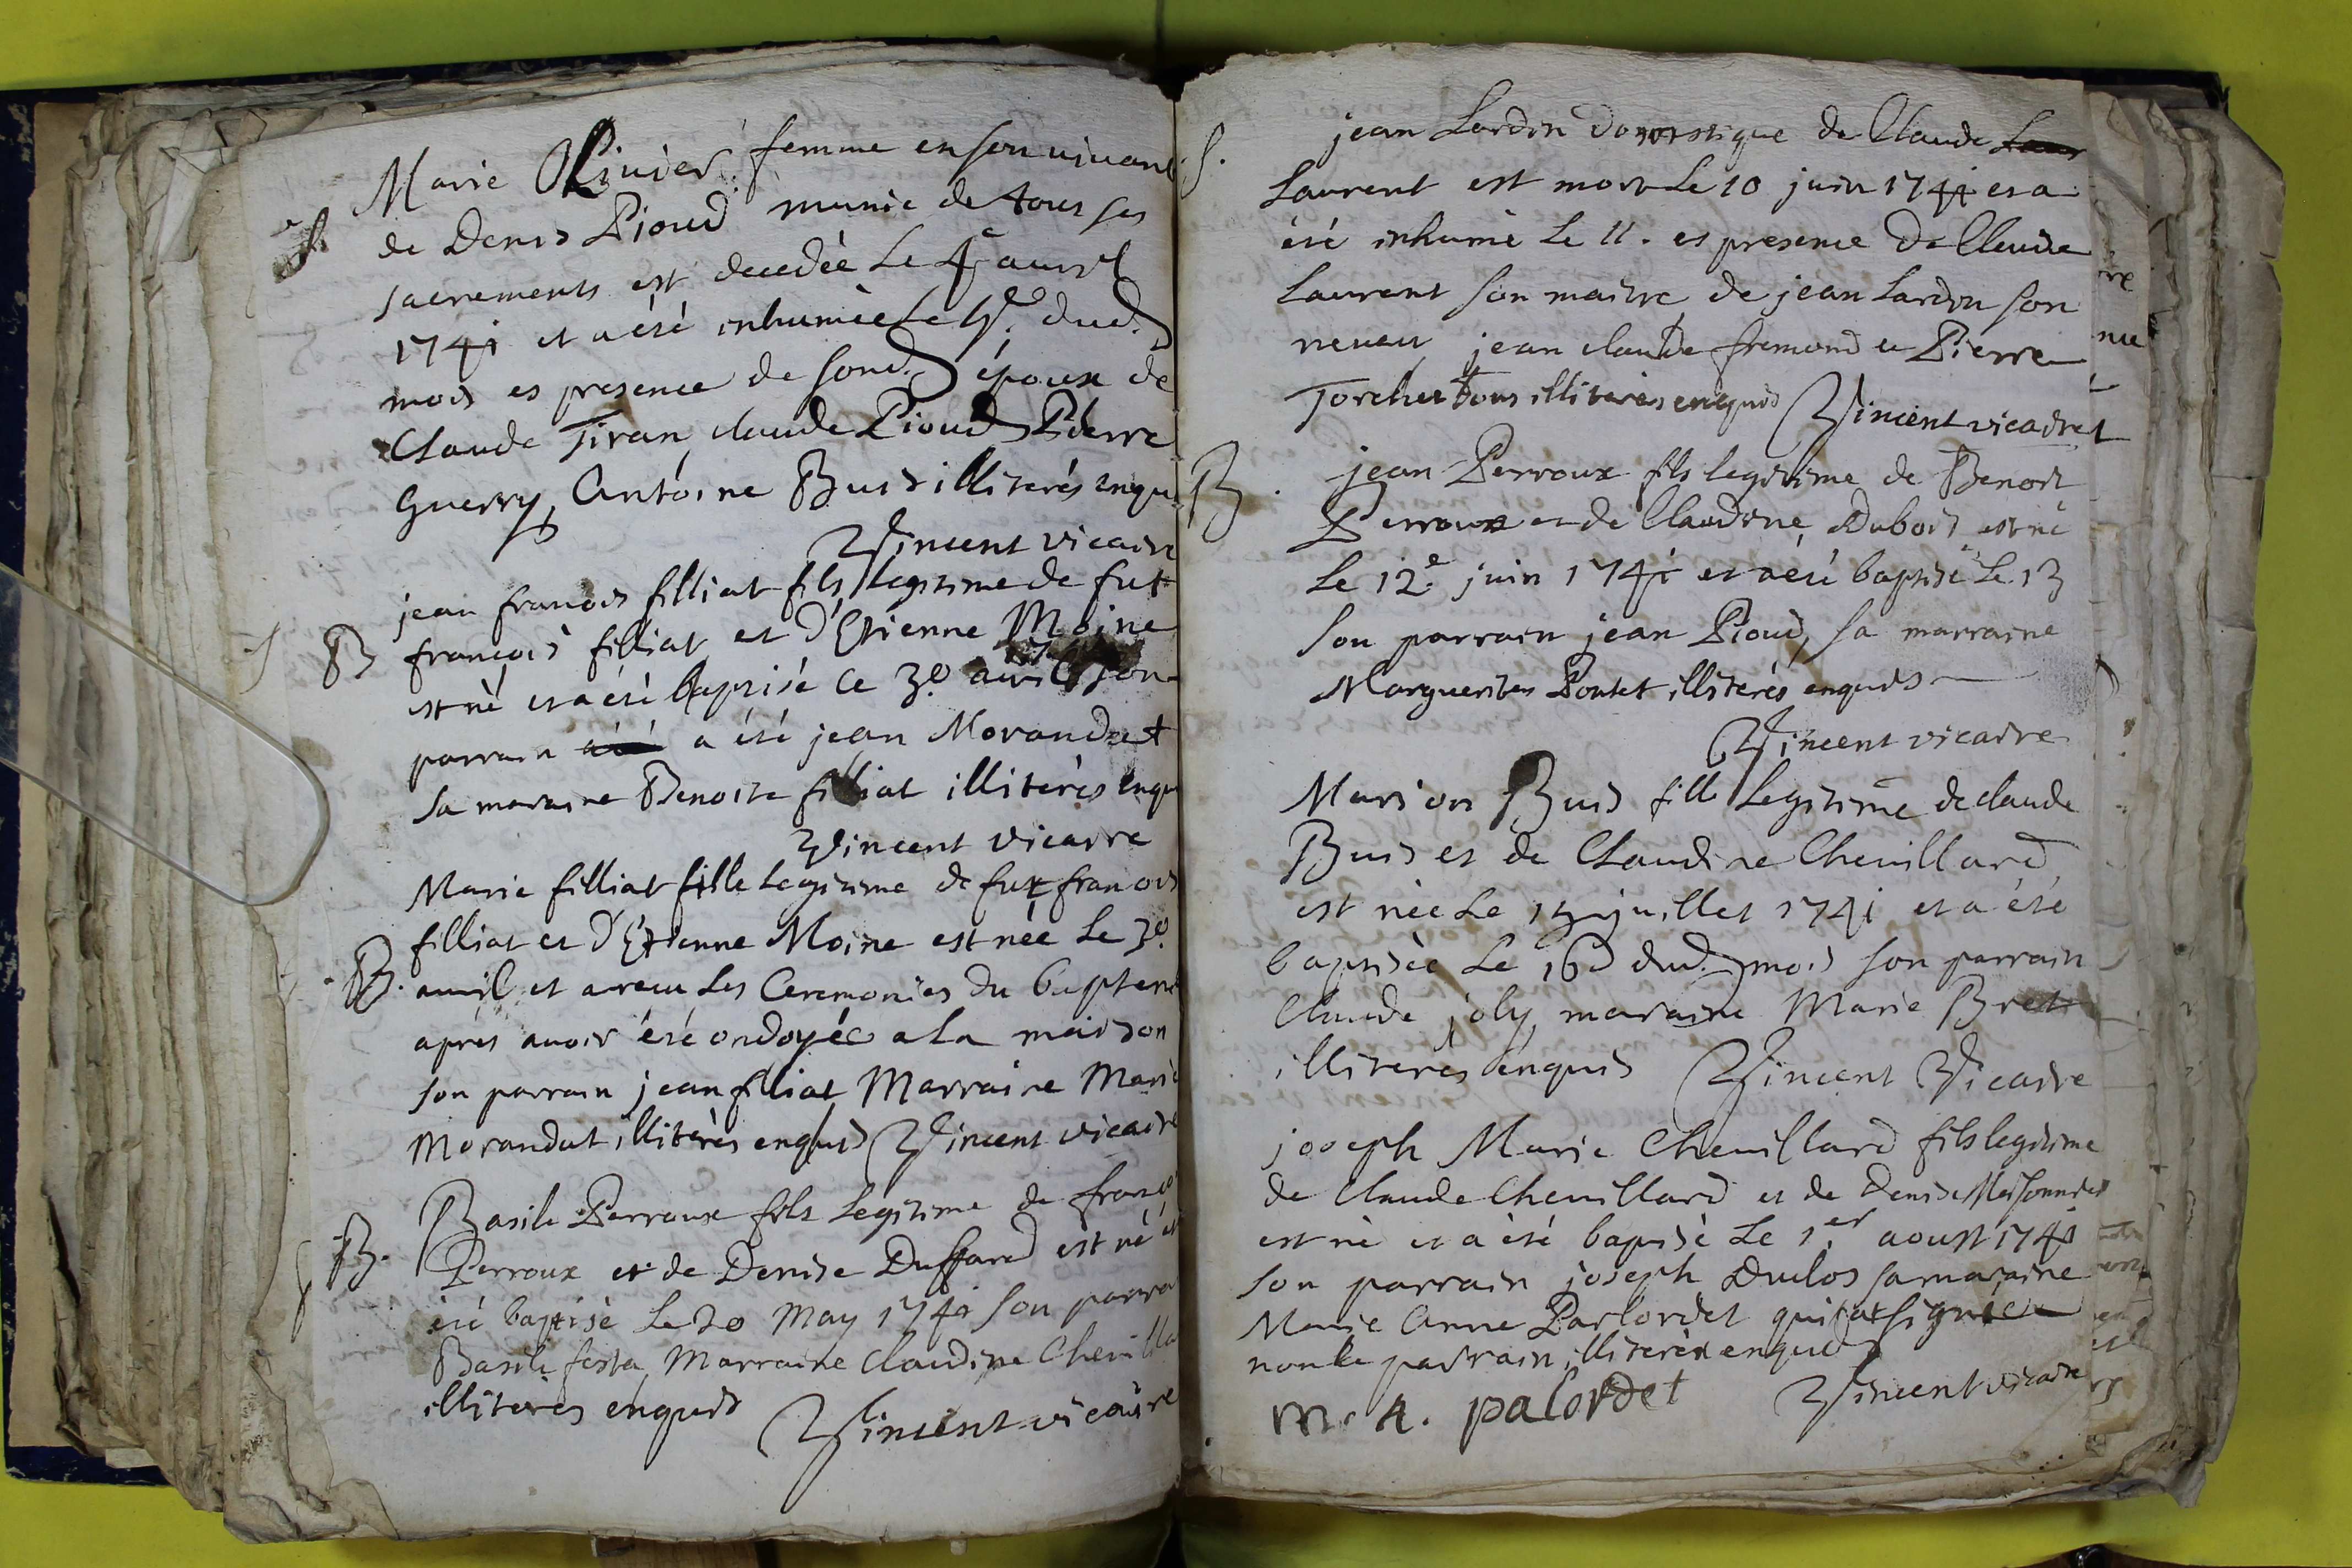 S.
Marie Olivier femme en son vivant
de Denis Pioud munie de tous ses
sacrements est decedée Le 4e avril
1741 et a été inhumée Le 5e. dud.
mois es presence de sond. époux de
Claude Tiran, claude Pioud Pierre
Guerry, Antoine Buis illiterés enquis
Vincent vicaire
B
jean francois filliat fils legitime de fut
françois filliat et d'Etienne Moine
est né et a été baptisé Ce 3e. avril son
parrain a été jean Morandat
sa maraine Benoite filliat illiterés enqu
Vincent vicaire
B.
Marie filliat fille legitime de fut francois
filliat et d'Etienne Moine est née Le 3e.
avril et a recu Les Ceremonies du bapteme
aprés avoir été ondoyée a La maison
son parrain jean filliat Marraine Marie
Morandat illiterés enquis Vincent vicaire
B.
Basile Perroux fils Legitime de franço
Perroux et de Denise Duffard est né et
été baptisé Le 20 May 1741 son parra
Basile festa Marraine Claudine Chevilla
illiterés enquis Vincent vicaire
S.
jean Lardin domestique de Claude
Laurent est mort Le 10 juin 1741 et a
été inhumé Le 11. es presence De Claude
Laurent son maitre de jean Lardin son
neveu jean claude fremond et Pierre
Torchet tous illiterés enquis Vincent vicaire
B.
jean Perroux fils legitime de Benoit
Perroux et de Claudine Dubois est né
Le 12e. juin 1741 et a été baptisé Le 13
son parrain jean Pioud, sa marraine
Marguerite Pontet illiterés enquis
Vincent vicaire
Marion Buis fille Legitime de claude
Buis et de Claudine Chevillard
est née Le 15 juillet 1741 et a été
baptisée Le 16 dud. mois son parrain
Claude joly maraine Marie Bret
illiterés enquis Vincent Vicaire
joseph Marie Chevillard fils legitime
de Claude Chevillard et de Denise
est né et a été baptisé Le 1er aoust 1741
son parrain joseph Duclos sa maraine
Marie Anne Parlordet qui a signée
non le parrain illiteré enquis
m. A. palordet Vincent vicaire